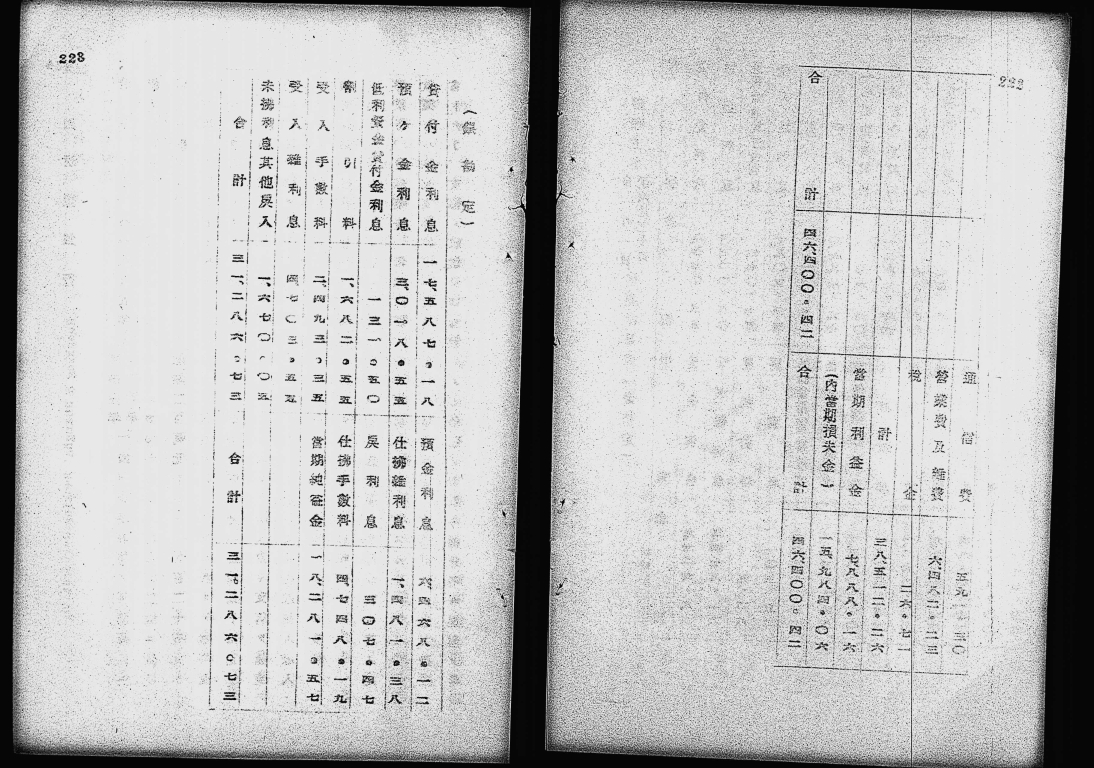 222
通信費 五九一・三〇
營業費及雜費 六、四八二。二三
税金 三六。七一
計 三八、五一二。二六
當期利益金 七、八八八。一六
(内當期損失金) 一五、九八四。〇六
合計 四六、四〇〇。四二
合計 四六、四〇〇。四二
228
(銀勘定)
貸付金利息 一七、五八七。一八
預ケ金利息 三、〇一八。五五
低利資金貸付金利息 一三一。五〇
割引料 一、六八二。五五
受入手數料 二、四九三。三五
受入雜利息 四、七〇三。五五
未拂利息其他戾入 一、六七〇。〇五
合計 三一、二八六。七三
預金利息 六、四六八。一二
仕拂雜利息 一、四八一。三八
戾利息 三〇七。四七
仕拂手數料 四、七四八。一九
當期純益金 一八、二八一。五七
合計 三一、二八六。七三